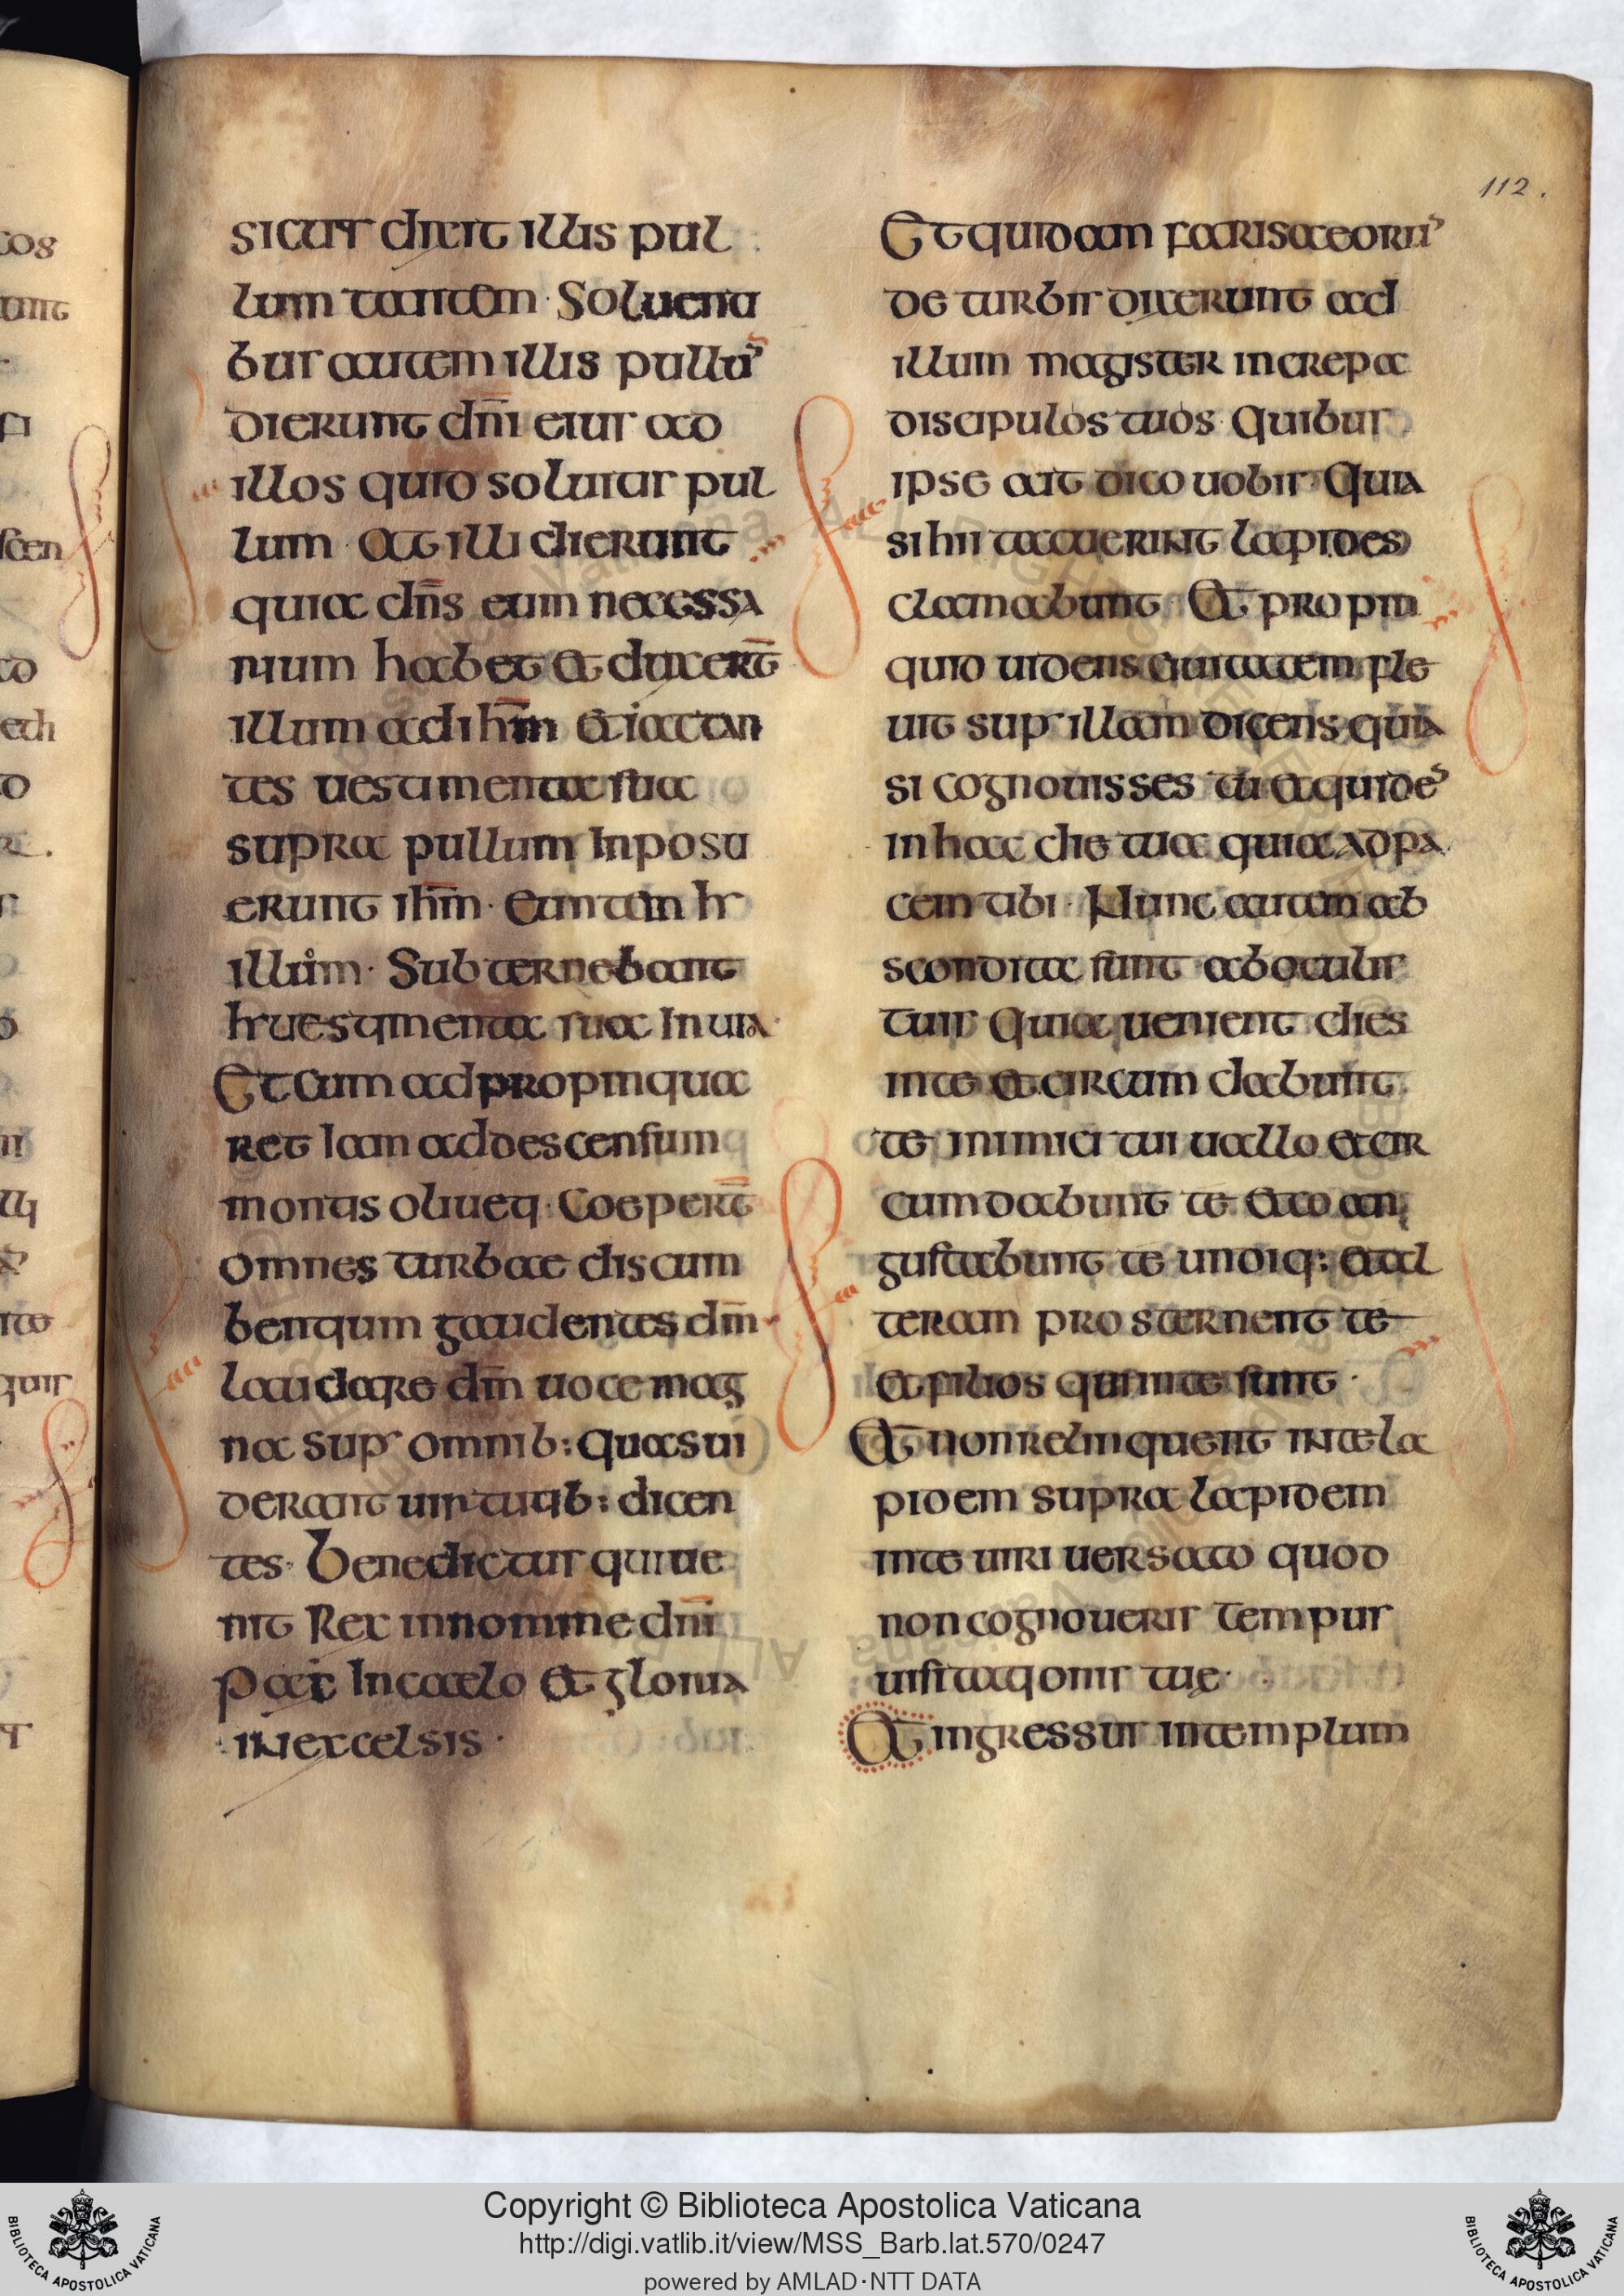 112.
sicut dixit illis pul
lum tantum · Soluenti
bus autem illis pullū
dixerunt dn̄i eius ad
illos quid soluitis pul
lum · At illi dixerunt
quia dn̄s eum necessa
rium habet et duxer̄t
illum ad ihm̄ et iactan
tes uestimenta sua
supra pullum Inposu
erunt ihm̄ · Eunte in h̅
Sub ternebant
uestimenta sua In uia
Et cum adpropinqua
ret Iam addescensum
montis oliueti · Coeper̄t
omnes turbae discum
bentium gaudentes dm̄
laudare dm̄ uoce mag
na sup omnib: quas ui
derant uirtutib: dicen
tes · Benedictus qui ue
nit Rex in nomine dn̄i
pax In caelo et gloria
in excelsis ·
Et quidam farisaeorū
de turbis dixerunt ad
illum magister increpa
discipulos tuos · Quibus
ipse ait dico uobis Quia
si hii tacuerint lapides
clamabunt · Et propin
quid uidens ciuitatem fle
uit sup illam dicens quia
si cognouisses tu et quidē
in hac die tua quia ad pa
cem tibi · Nunc autem ab
scondita sunt ab oculis
tuis Quia uenient dies
in te et circum dabunt
te inimici tui uallo et cir
cumdabunt te et co an
gustabunt te undiq: et ad
teram prosternent te
et filios qui in te sunt ·
Et non relinquent in te la
pidem supra lapidem
in te uiri uersato quod
non cognoueris tempus
uisitationis tuę ·
Et ingressus in templum
Copyright © Biblioteca Apostolica Vaticana
http://digi.vatlib.it/view/MSS_Barb.lat.570/0247
powered by AMLAD·NTT DATA
BIBLIOTECA APOSTOLICA VATICANA
BIBLIOTECA APOSTOLICA VATICANA